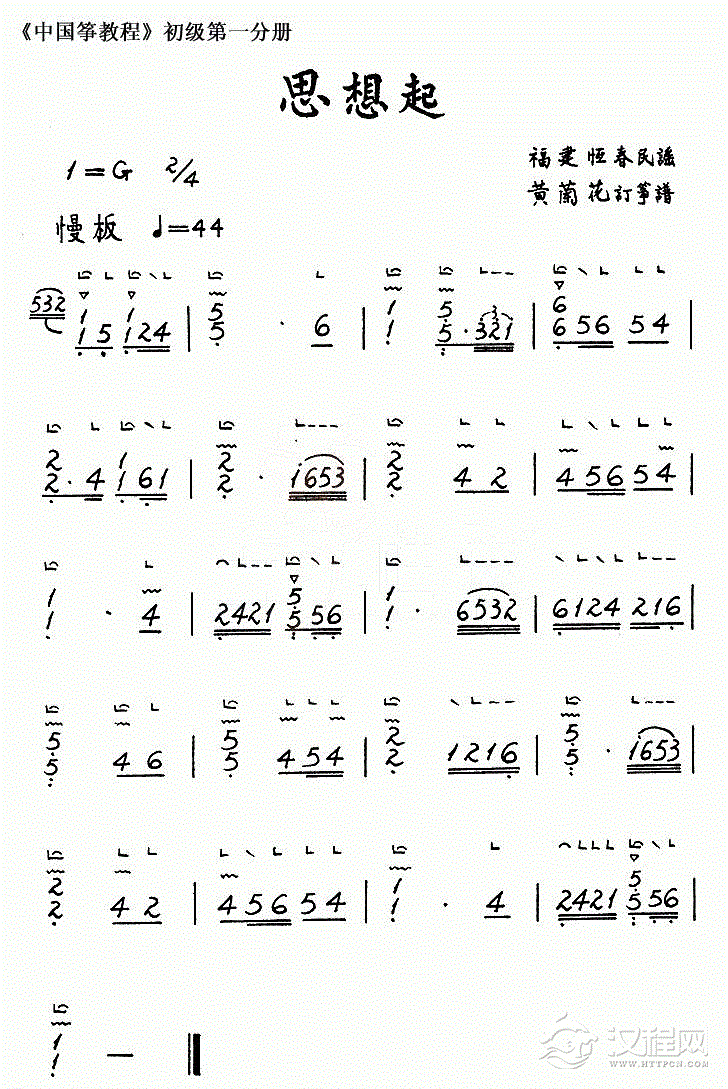 《中国筝教程》初级第一分册
思想起
1=G 2/4
福建恒春民謡
黄蘭花訂筝譜
慢板 ♩=44
532 1 1 5 1 1 2 4 | 5 5 · 6 | 1 1 5 5 · 3 2 1 | 6 6 5 6 5 4 |
2 2 · 4 1 1 6 1 | 2 2 · 1653 | 2 2 4 2 | 4 5 6 5 4 |
1 1 · 4 | 2421 5 5 5 6 | 1 1 · 6532 | 6124 216 |
5 5 4 6 | 5 5 4 5 4 | 2 2 1216 | 5 5 · 1653 |
2 2 4 2 | 4 5 6 5 4 | 1 1 · 4 | 2421 5 5 5 6 |
1 1 — ‖
汉程网
WWW.HTTPCN.COM